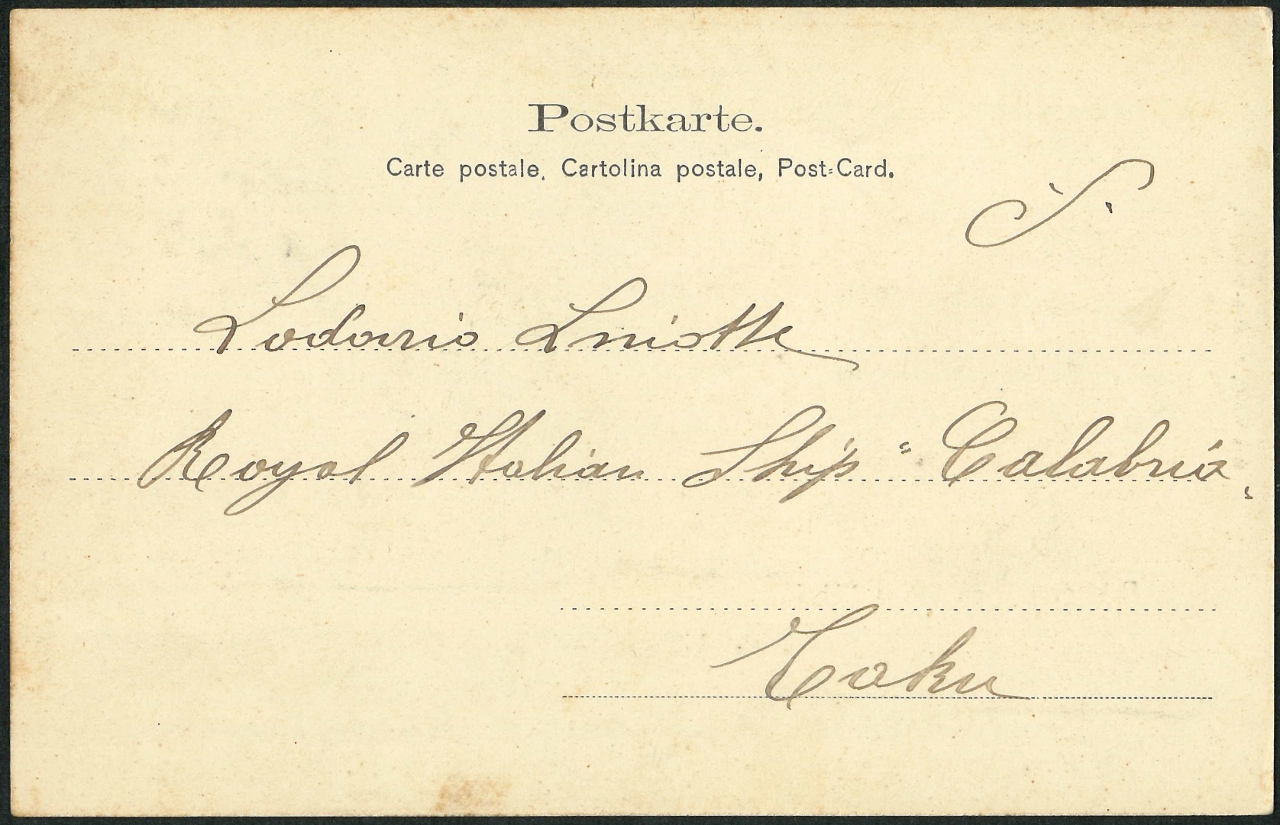 Postkarte.
Carte postale, Cartolina postale, Post-Card.
S.
Royal Italian Ship "Calabria"
Taku